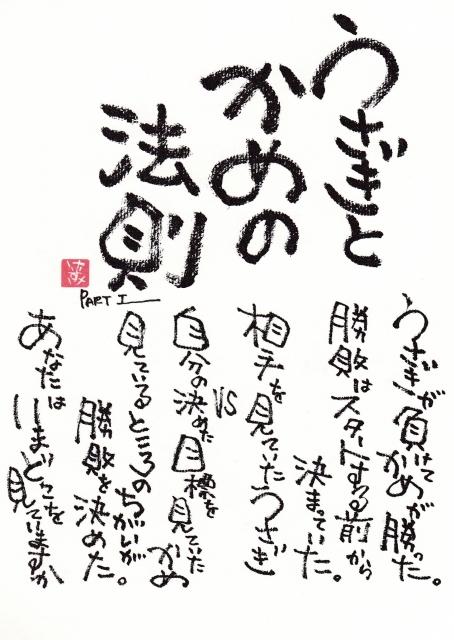 うさぎと
かめの
法則
PART I
うさぎが負けて
かめが勝った。
勝敗はスタートする前から
決まっていた。
相手を見ていたうさぎ
VS
自分の決めた目標を見ていたかめ
見ているところのちがいが
勝敗を決めた。
あなたはいまどこを見ていますか